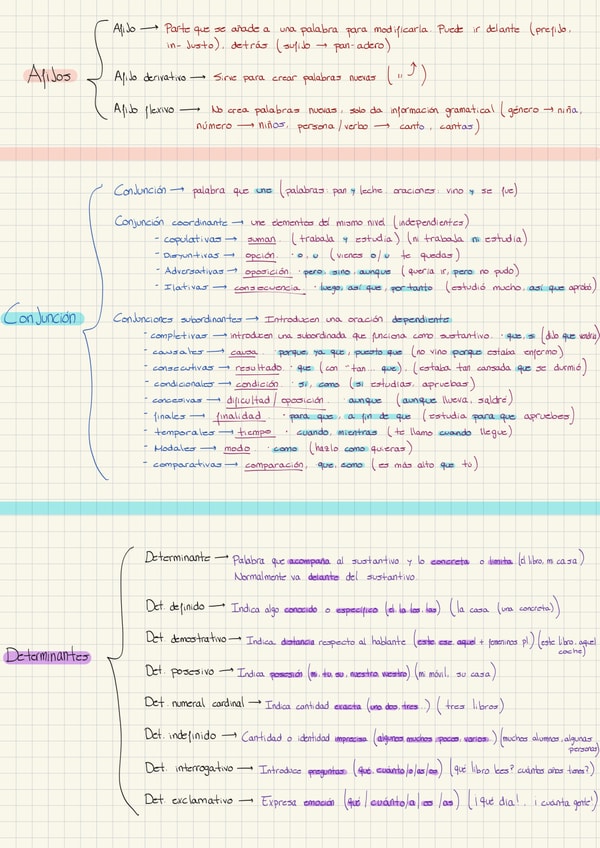 Afijos
Afijo → Parte que se añade a una palabra para modificarla. Puede ir delante (prefijo,
in-justo), detrás (sufijo → pan-adero)
Afijo derivativo → Sirve para crear palabras nuevas ( " ⤴ )
Afijo flexivo → No crea palabras nuevas, solo da información gramatical (género → niña,
número → niños, persona/verbo → canto, cantas)
Conjunción
Conjunción → palabra que une (palabras: pan y leche. oraciones: vino y se fue)
Conjunción coordinante → une elementos del mismo nivel (independientes)
- copulativas → suman. (trabaja y estudia) (ni trabaja ni estudia)
- Disyuntivas → opción. · o, u (vienes o/u te quedas)
- Adversativas → oposición · pero, sino, aunque (quería ir, pero no pudo)
- Ilativas → consecuencia. · luego, así que, por tanto (estudió mucho, así que aprobó)
Conjunciones subordinantes → Introducen una oración dependiente
- completivas → introducen una subordinada que funciona como sustantivo. · que, si (dijo que vendría)
- causales → causa. · porque, ya que, puesto que (no vino porque estaba enfermo)
- consecutivas → resultado. · que (con "tan... que). (estaba tan cansada que se durmió)
- condicionales → condición. · si, como (si estudias, apruebas)
- concesivas → dificultad/oposición. · aunque (aunque llueva, saldré)
- finales → finalidad. · para que, a fin de que (estudia para que apruebes)
- temporales → tiempo. · cuando, mientras (te llamo cuando llegue)
- Modales → modo. · como (hazlo como quieras)
- comparativas → comparación, que, como (es más alto que tú)
Determinantes
Determinante → Palabra que acompaña al sustantivo y lo concreta o limita (el libro, mi casa)
Normalmente va delante del sustantivo.
Det. definido → Indica algo conocido o específico (el, la, los, las) (la casa (una concreta))
Det. demostrativo → Indica distancia respecto al hablante (este, ese, aquel + femeninos pl.) (este libro, aquel
coche)
Det. posesivo → Indica posesión (mi, tu, su, nuestro, vuestro) (mi móvil, su casa)
Det. numeral cardinal → Indica cantidad exacta (uno, dos, tres..) (tres libros)
Det. indefinido → Cantidad o identidad imprecisa (algunos, muchos, pocos, varios..) (muchos alumnos, algunas
personas)
Det. interrogativo → Introduce preguntas (qué, cuánto/a/os/as) (¿qué libro lees? ¿cuántos años tienes?)
Det. exclamativo → Expresa emoción (qué/cuánto/a/os/as) (¡qué día!, ¡cuánta gente!)